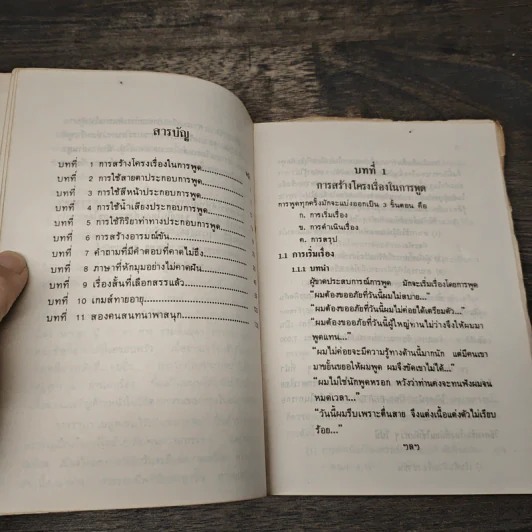 สารบัญ
บทที่ 1 การสร้างโครงเรื่องในการพูด
บทที่ 2 การใช้สายตาประกอบการพูด
บทที่ 3 การใช้สีหน้าประกอบการพูด
บทที่ 4 การใช้น้ำเสียงประกอบการพูด
บทที่ 5 การใช้กิริยาท่าทางประกอบการพูด
บทที่ 6 การสร้างอารมณ์ขัน
บทที่ 7 คำถามที่มีคำตอบที่คาดไม่ถึง
บทที่ 8 ภาษาที่หักมุมอย่างไม่คาดฝัน
บทที่ 9 เรื่องสั้นที่เลือกสรรแล้ว
บทที่ 10 เกมส์ทายอายุ
บทที่ 11 สองคนสนทนาพาสนุก
บทที่ 1
การสร้างโครงเรื่องในการพูด
การพูดทุกครั้งมักจะแบ่งออกเป็น 3 ขั้นตอน คือ
ก. การเริ่มเรื่อง
ข. การดำเนินเรื่อง
ค. การสรุป
1.1 การเริ่มเรื่อง
1.1.1 บทนำ
ผู้ขาดประสบการณ์การพูด มักจะเริ่มเรื่องโดยการพูด
"ผมต้องขออภัยที่วันนี้ผมไม่สบาย..."
"ผมต้องขออภัยที่วันนี้ผมไม่ค่อยได้เตรียมตัว..."
"ผมต้องขออภัยที่วันนี้ผู้ใหญ่ท่านไม่ว่างจึงให้ผมมา
พูดแทน..."
"ผมไม่ค่อยจะมีความรู้ทางด้านนี้มากนัก แต่มีคนเขา
มาขยั้นขยอให้ผมพูด ผมจึงขัดเขาไม่ได้..."
"ผมไม่ใช่นักพูดหรอก หวังว่าท่านคงจะทนฟังผมจน
หมดเวลา..."
"วันนี้ผมรีบเพราะตื่นสาย จึงแต่งเนื้อแต่งตัวไม่เรียบ
ร้อย..."
ฯลฯ